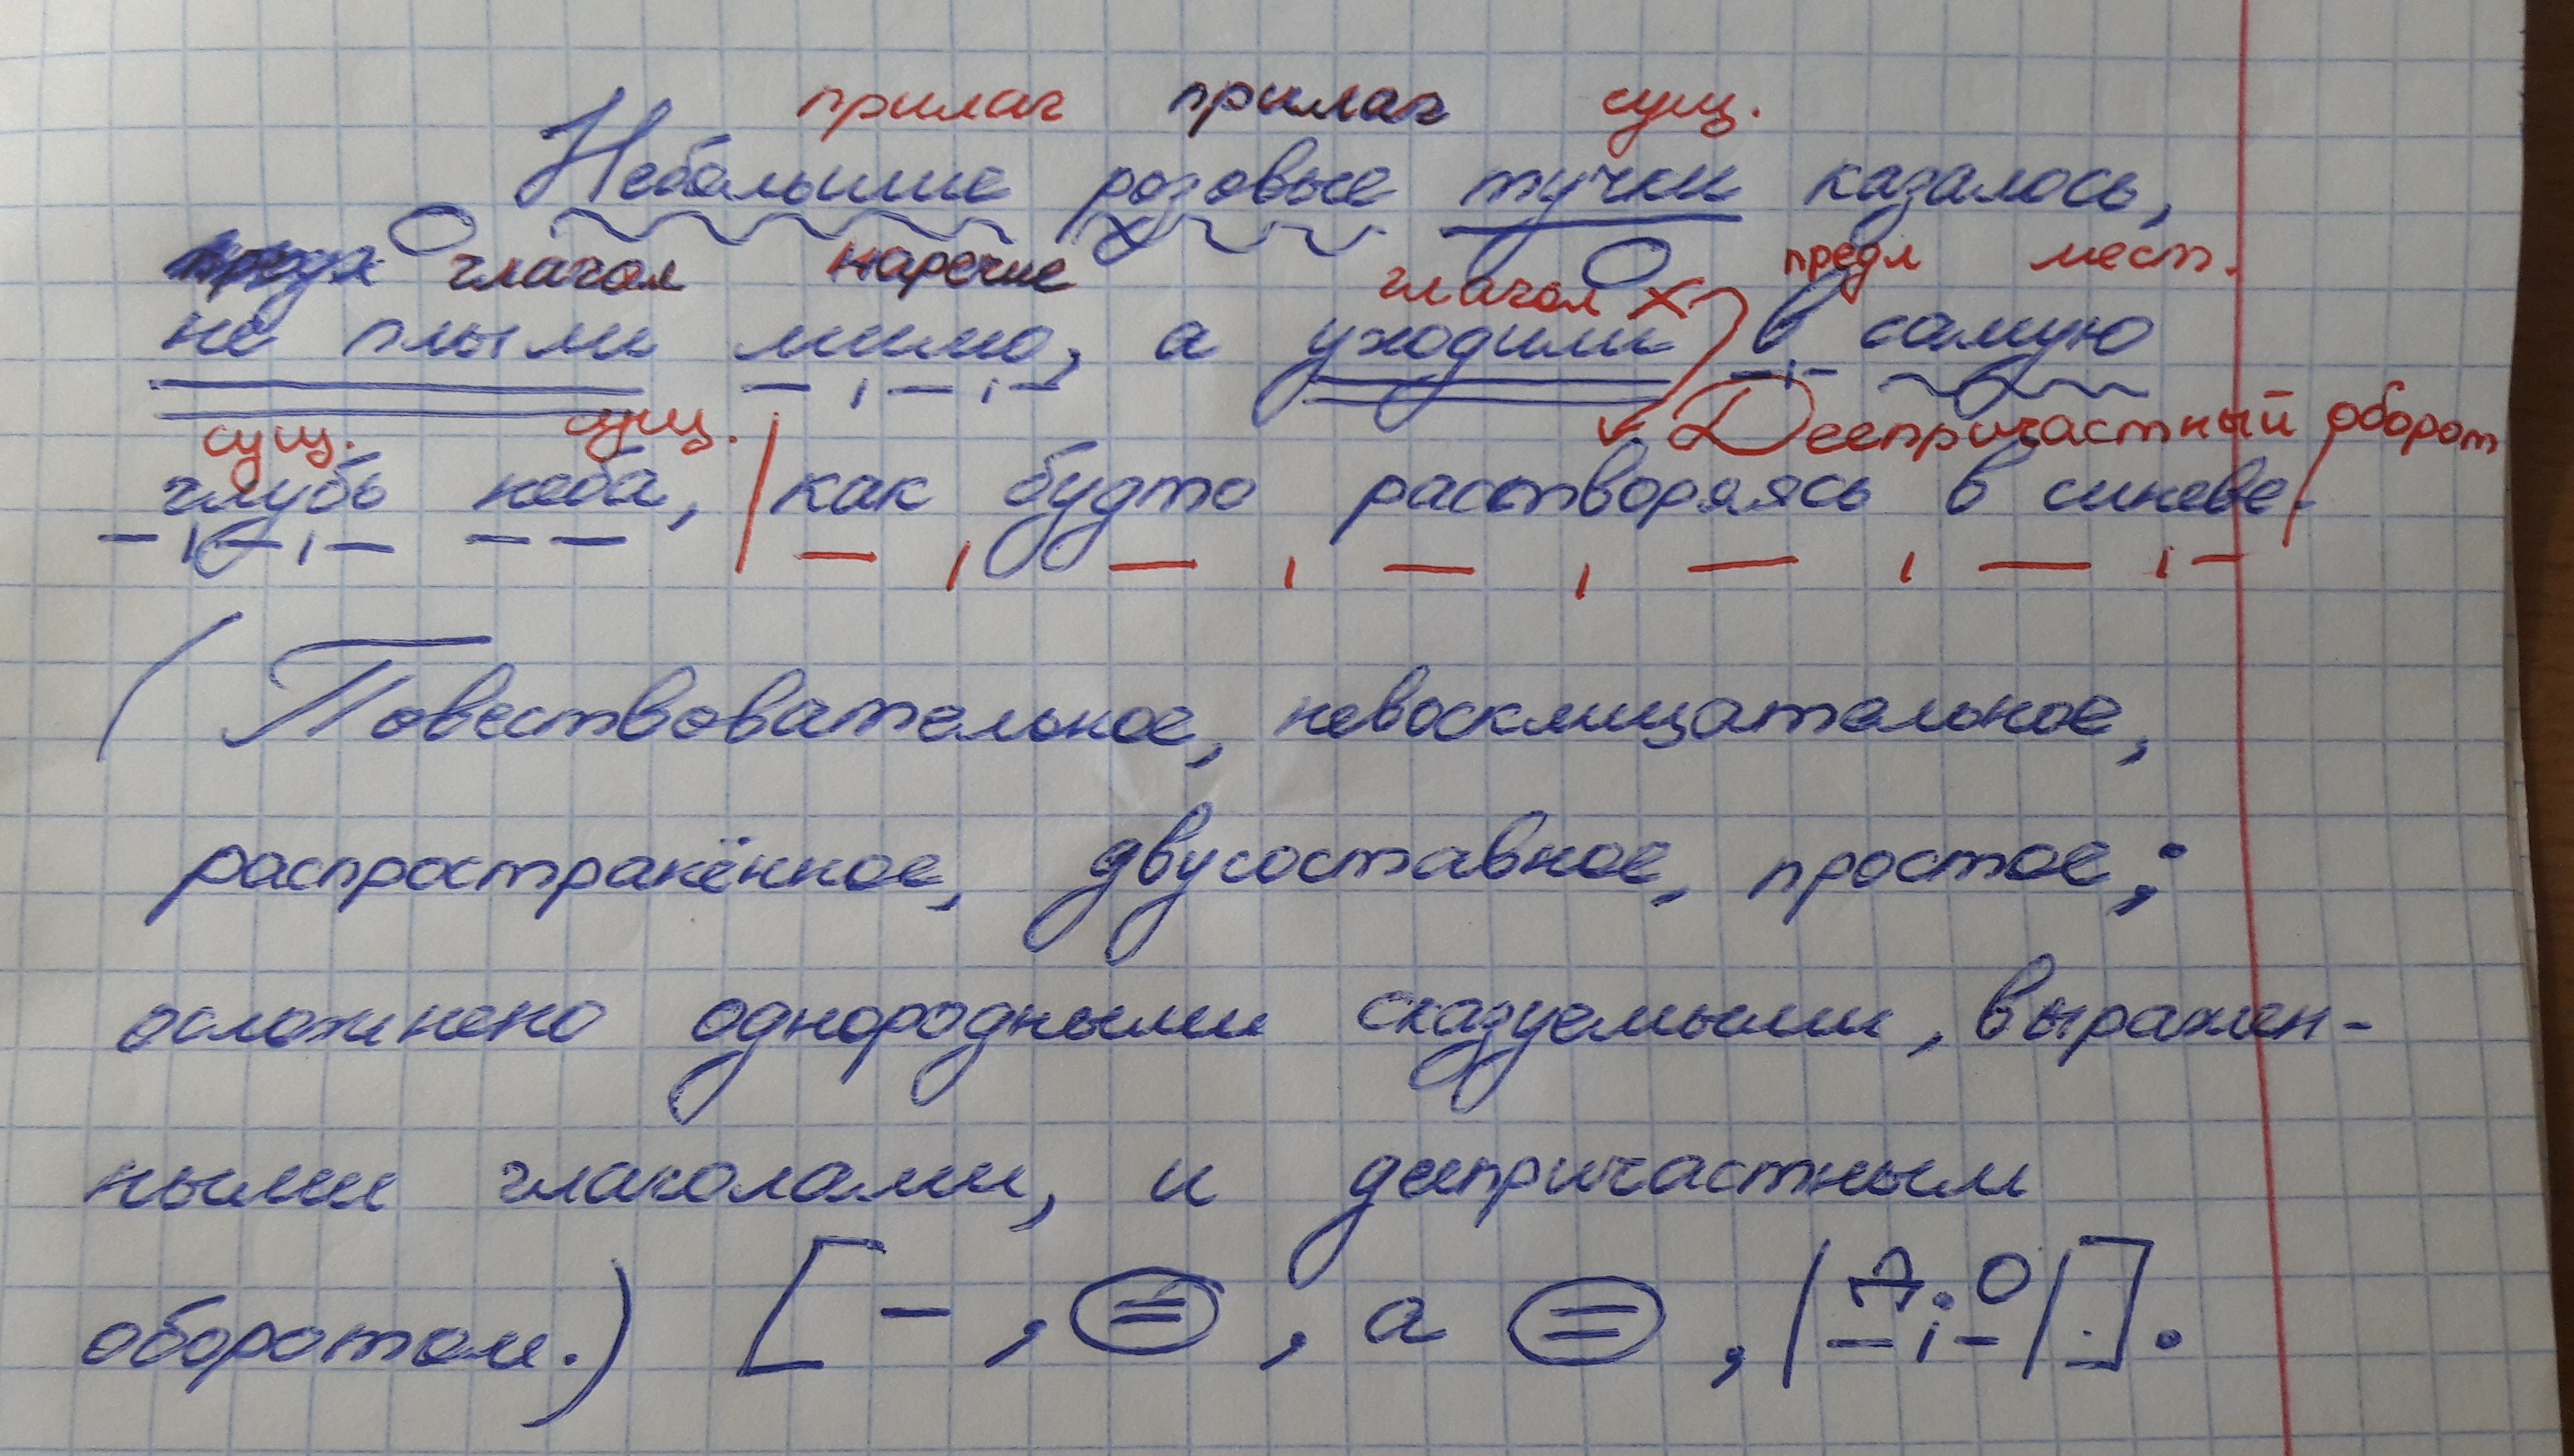 прилаг прилаг сущ.
Небольшие розовые тучки казалось,
глагол наречие глагол х предл мест.
не плыли мимо, а уходили в самую
сущ. сущ. Деепричастный оборот
глубь неба, | как будто растворяясь в синеве. |
(Повествовательное, невосклицательное,
распространённое, двусоставное, простое;
осложнено однородными сказуемыми, выражен-
ными глаголами, и деепричастным
оборотом.) [ – , = , а = , | Д. О | ].